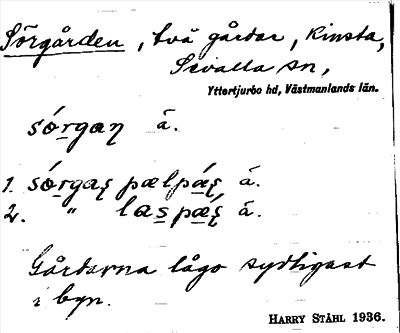 Sörgården, två gårdar, Kinsta,
Sevalla sn,
Yttertjurbo hd, Västmanlands län.
sórgaƞ ä.
1. sórgaș pælpæ̀ș ä.
2. " laspæ̀ș ä.
Gårdarna lågo sydligast
i byn.
HARRY STÅHL 1936.